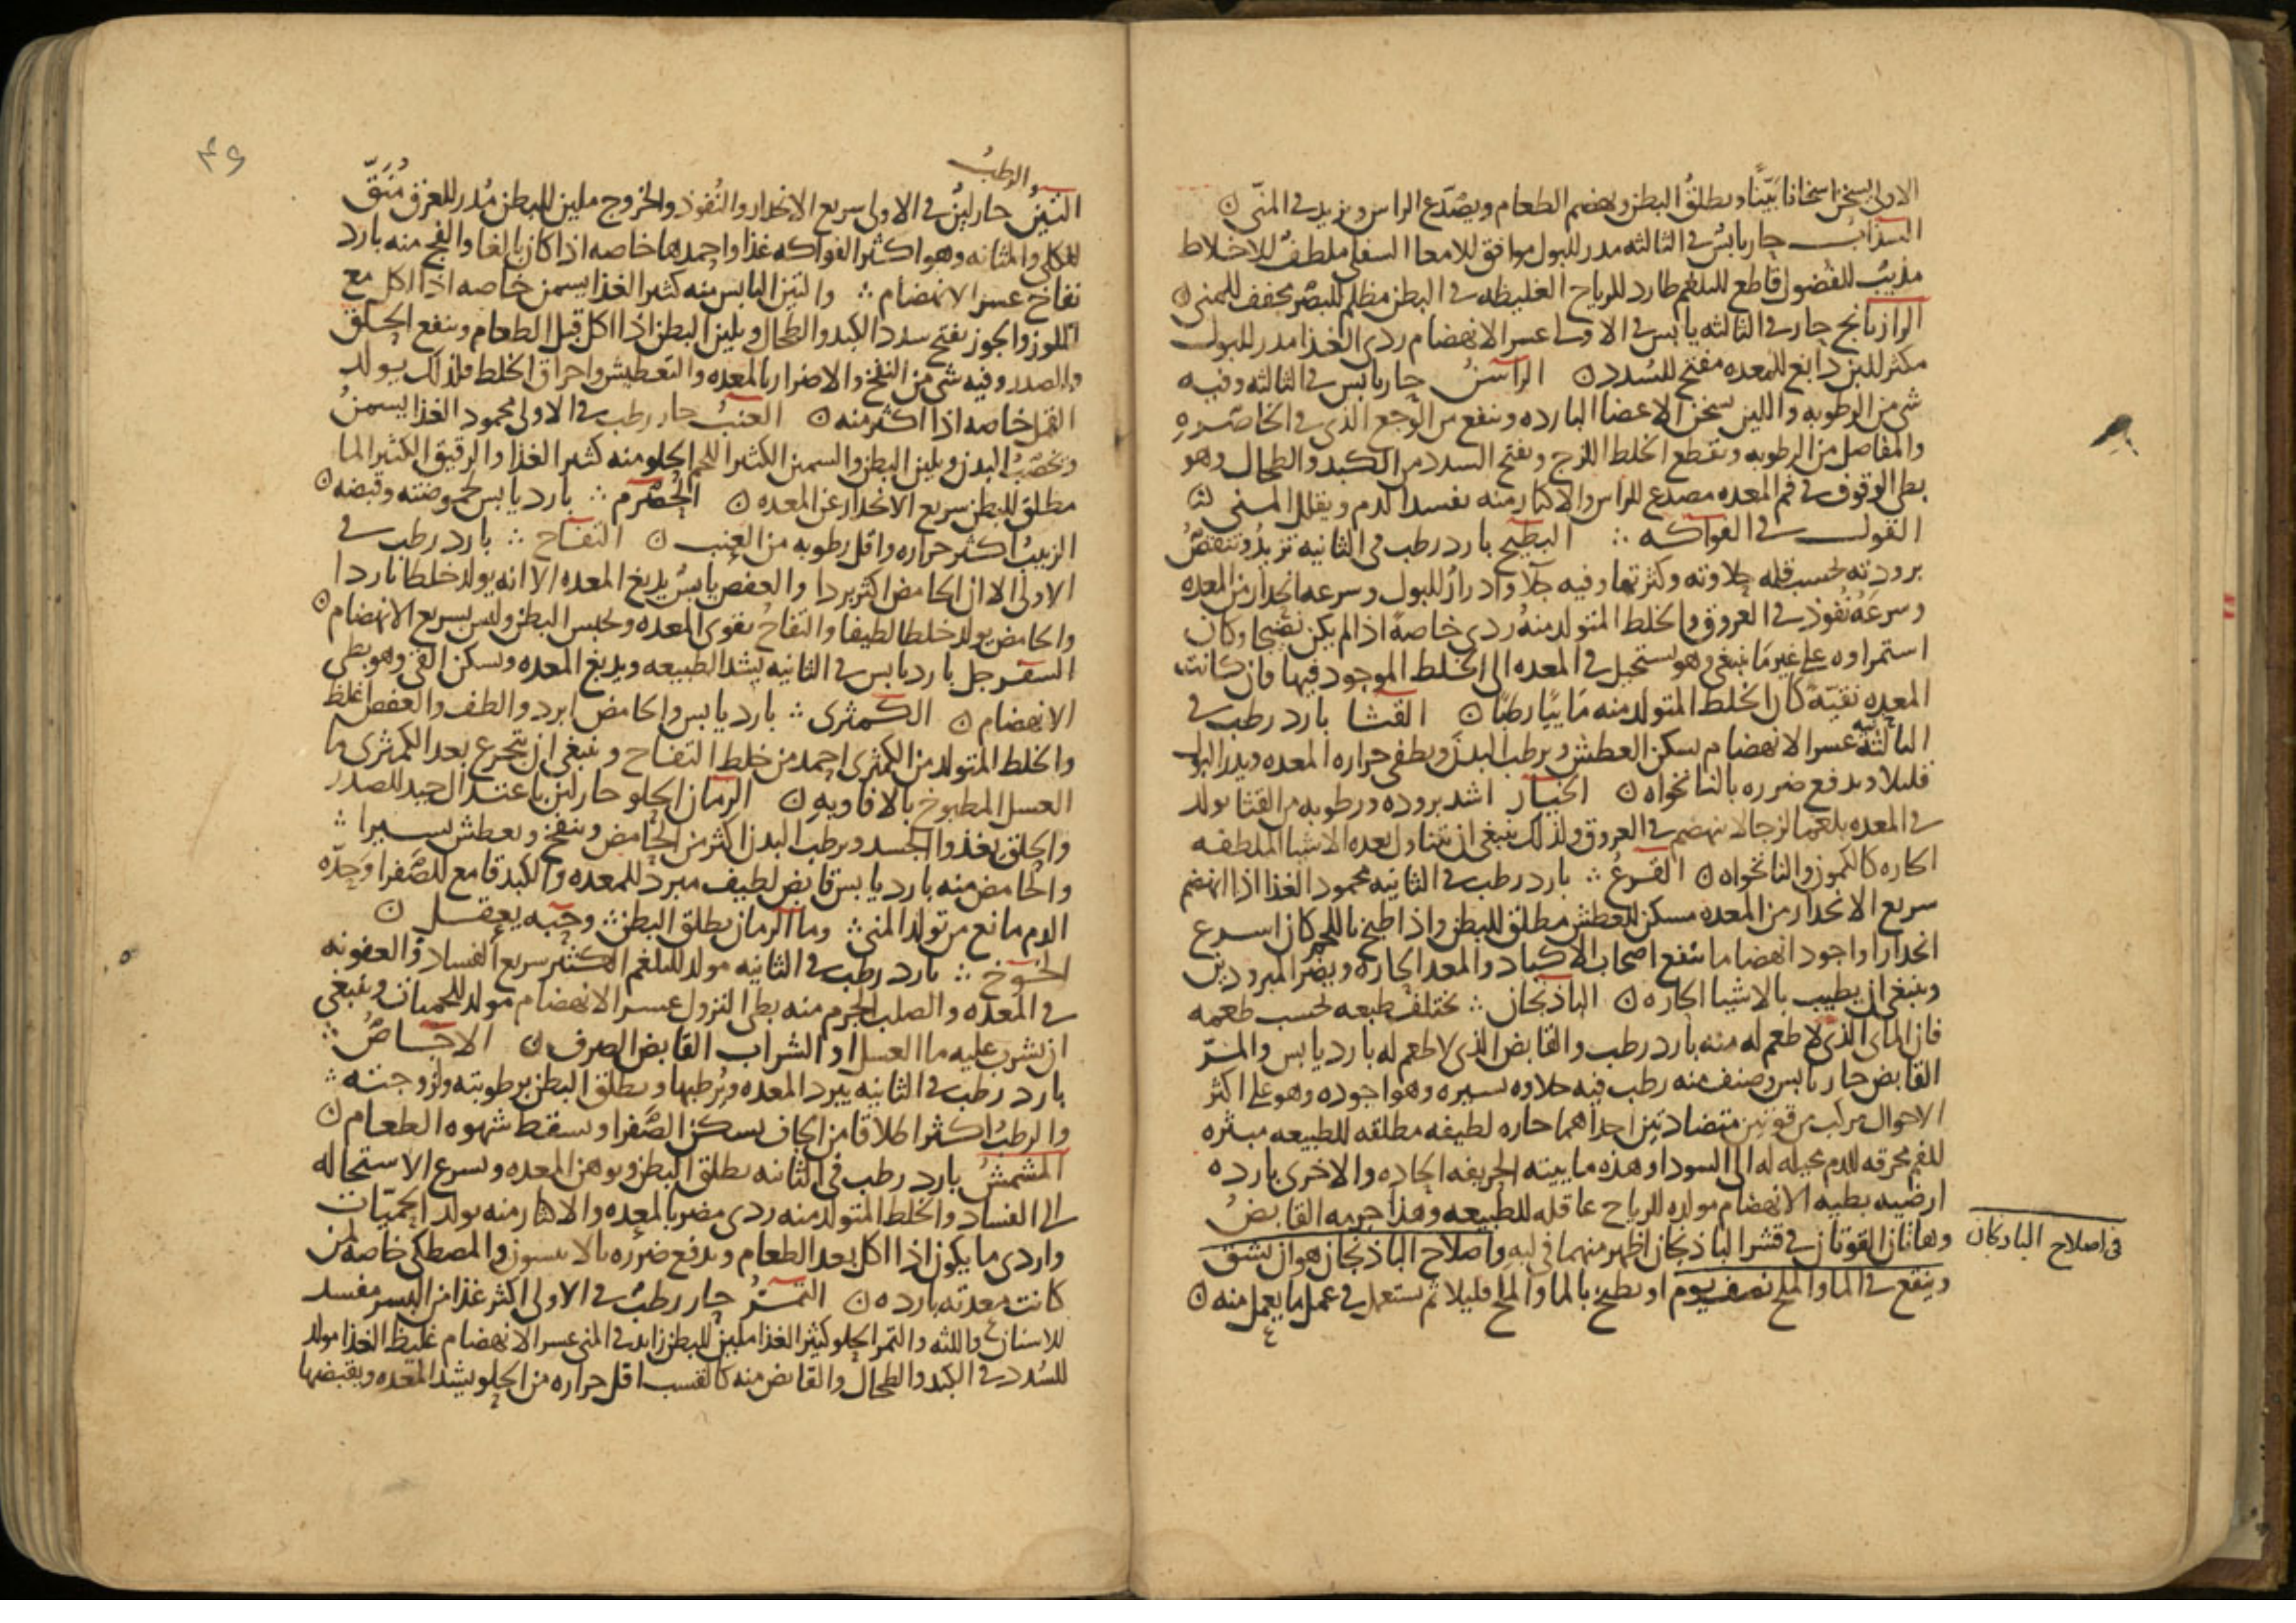 الاولى يسخن اسخانا بيّنا ويطلق البطن ويهضم الطعام ويصدّع الراس ويزيد في المنّي
السذاب حار يابس في الثالثه مدر للبول موافق للامعا السفلى ملطف للاخلاط
مذيب للفضول قاطع للبلغم طارد للرياح الغليظه في البطن مظلم للبصر مجفف للمني
الرازيانج حار في الثالثه يابس في الاولى عسر الانهضام ردى الغذا مدر للبول
مكثر للبن دابغ للمعده مفتح للسدد الراسن حار يابس في الثالثه وفيه
شى من الرطوبه والليـن يسخن الاعضا البارده وينفع من الوجع الذى في الخاصره
والمفاصل من الرطوبه ويقطع الخلط اللزج ويفتح السدد من الكبد والطحال وهو
بطى الوقوف في فم المعده مصدع للراس والاكثار منه يفسد الدم ويقلل المنى
القول في الفواكه البطيخ بارد رطب فى الثانيه تزيد وتنقص
برودته بحسب قله حلاوته وكثرتها وفيه جلا وادرار للبول وسرعه انحدار من المعده
وسرعه نفوذ في العروق والخلط المتولد منه ردى خاصة اذا لم يكن نضيجا وكان
استمراوه على غير ما ينبغى وهو يستحيل في المعده الى الخلط الموجود فيها فان كانت
المعده نقيّه كان الخلط المتولد منه مائيّا رطبا القثا بارد رطب في
الثالثه عسر الانهضام يسكن العطش ويرطب البدن ويطفى حراره المعده ويدر البول
قليلا ويدفع ضرره بالنانخواه الخيار اشد بروده ورطوبه من القثا يولد
في المعده بلغما لزجا لا ينهضم في العروق ولذلك ينبغى ان يتناول بعده الاشيا الملطفه
الحاره كالكمون والنانخواه القرع بارد رطب في الثانيه محمود الغذا اذا انهضم
سريع الانحدار من المعده مسكن للعطش مطلق للبطن واذا طبخ باللحم كان اسرع
انحدارا واجود انهضاما ينفع اصحاب الاكباد والمعد الحاره ويضر المبرودين
وينبغى ان يطيب بالاشيا الحاره الباذنجان يختلف طبعه بحسب طعمه
فان المائى الذى لا طعم له منه بارد رطب والقابض الذى لا طعم له بارد يابس والمرّ
القابض حار يابس وصنف منه رطب فيه حلاوه يسيره وهو اجوده وهو على اكثر
الاحوال مركب من قوتين متضادتين احداهما حاره لطيفه مطلقه للطبيعه مبثره
للفم محرقه للدم محيله له الى السودا وهذه ماييته الحريفه الحاده والاخرى بارده
ارضيه بطيه الانهضام مولده للرياح عاقله للطبيعه وهذا جرمه القابض
وهاتان القوتان في قشر الباذنجان اظهر منهما فى لبه واصلاح الباذنجان هو ان يشق
وينقع في الما والملح نصف يوم او يطبخ بالما والملح قليلا ثم يستعمل في عمل ما يعمل منه
فى اصلاح البادنجان
٤٩
والرطب
التين حار لين في الاولى سريع الانحدار والنفوذ والخروج ملين للبطن مدر للعرق منقّ
للكلى والمثانه وهو اكثر الفواكه غذا واحمدها خاصه اذا كان بالغا والفج منه بارد
نفاخ عسر الانهضام والتين اليابس منه كثير الغذا يسمن خاصه اذا اكل مع
اللوز والجوز يفتح سدد الكبد والطحال ويلين البطن اذا اكل قبل الطعام وينفع الحلق
والصدر وفيه شى من النفخ والاضرار بالمعده والتعطيش واحراق الخلط فلذلك يولد
القمل خاصه اذا اكثر منه العنب حار رطب في الاولى محمود الغذا يسمن
ويخصب البدن ويلين البطن والسمين الكثير اللحم الحلو منه كثير الغذا والرقيق الكثير الما
مطلق للبطن سريع الانحدار عن المعده الحصرم بارد يابس لحموضته وقبضه
الزبيب اكثر حراره واقل رطوبه من العنب التفاح بارد رطب في
الاولى الا ان الحامض اكثر بردا والعفص يابس يدبغ المعده الا انه يولد خلطا باردا
والحامض يولد خلطا لطيفا والتفاح يقوى المعده ويحبس البطن وليس بسريع الانهضام
السفرجل بارد يابس في الثانيه يشد الطبيعه ويدبغ المعده ويسكن القى وهو بطى
الانهضام الكمثرى بارد يابس والحامض ابرد والطف والعفص اغلظ
والخلط المتولد من الكمثرى احمد من خلط التفاح وينبغى ان يتجرع بعد الكمثرى ما
العسل المطبوخ بالافاويه الرمان الحلو حار لين باعتدال جيد للصدر
والحلق يغذوا الجسد ويرطب البدن اكثر من الحامض وينفخ ويعطش يسيرا
والحامض منه بارد يابس قابض لطيف مبرد للمعده والكبد قامع للصفرا وحدّه
الدم مانع من تولد المنى وما الرمان يطلق البطن وحبه يعقل
الخوخ بارد رطب في الثانيه مولد للبلغم الكثير سريع الفساد والعفونه
في المعده والصلب الجرم منه بطى النزول عسر الانهضام مولد للحميات وينبغى
ان يشرب عليه ما العسل او الشراب القابض الصرف الاجاص
بارد رطب في الثانيه يبرد المعده ويرطبها ويطلق البطن برطوبته ولزوجته
والرطب اكثر اطلاقا من الجاف يسكن الصفرا ويسقط شهوه الطعام
المشمش بارد رطب فى الثانيه يطلق البطن ويوهن المعده ويسرع الاستحاله
الى الفساد والخلط المتولد منه ردى مضر بالمعده والاكثار منه يولد الحميّات
واردى ما يكون اذا اكل بعد الطعام ويدفع ضرره بالانيسون والمصطكى خاصه لمن
كانت معدته بارده التمر حار رطب في الاولى اكثر غذا من البسر مفسد
للاسنان واللثه والتمر الحلو كثير الغذا ملين للبطن زايد في المنى عسر الانهضام غليظ الغذا مولد
للسدد في الكبد والطحال والقابض منه كالقسب اقل حراره من الحلو يشد المعده ويقبضها